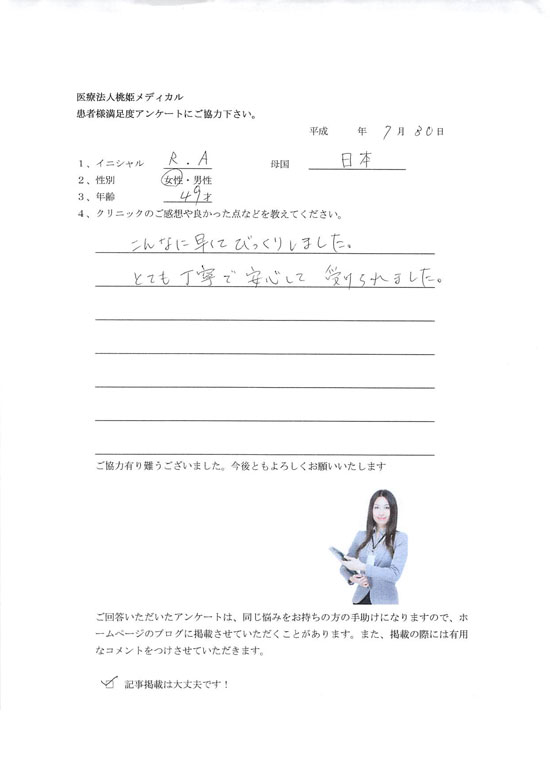 医療法人桃姫メディカル
患者様満足度アンケートにご協力下さい。
平成 年 7 月 30 日
1、イニシャル R.A 母国 日本
2、性別 女性・男性
3、年齢 49才
4、クリニックのご感想や良かった点などを教えてください。
こんなに早くてびっくりしました。
とても丁寧で安心して受けられました。
ご協力有り難うございました。今後ともよろしくお願いいたします
ご回答いただいたアンケートは、同じ悩みをお持ちの方の手助けになりますので、ホ
ームページのブログに掲載させていただくことがあります。また、掲載の際には有用
なコメントをつけさせていただきます。
記事掲載は大丈夫です！